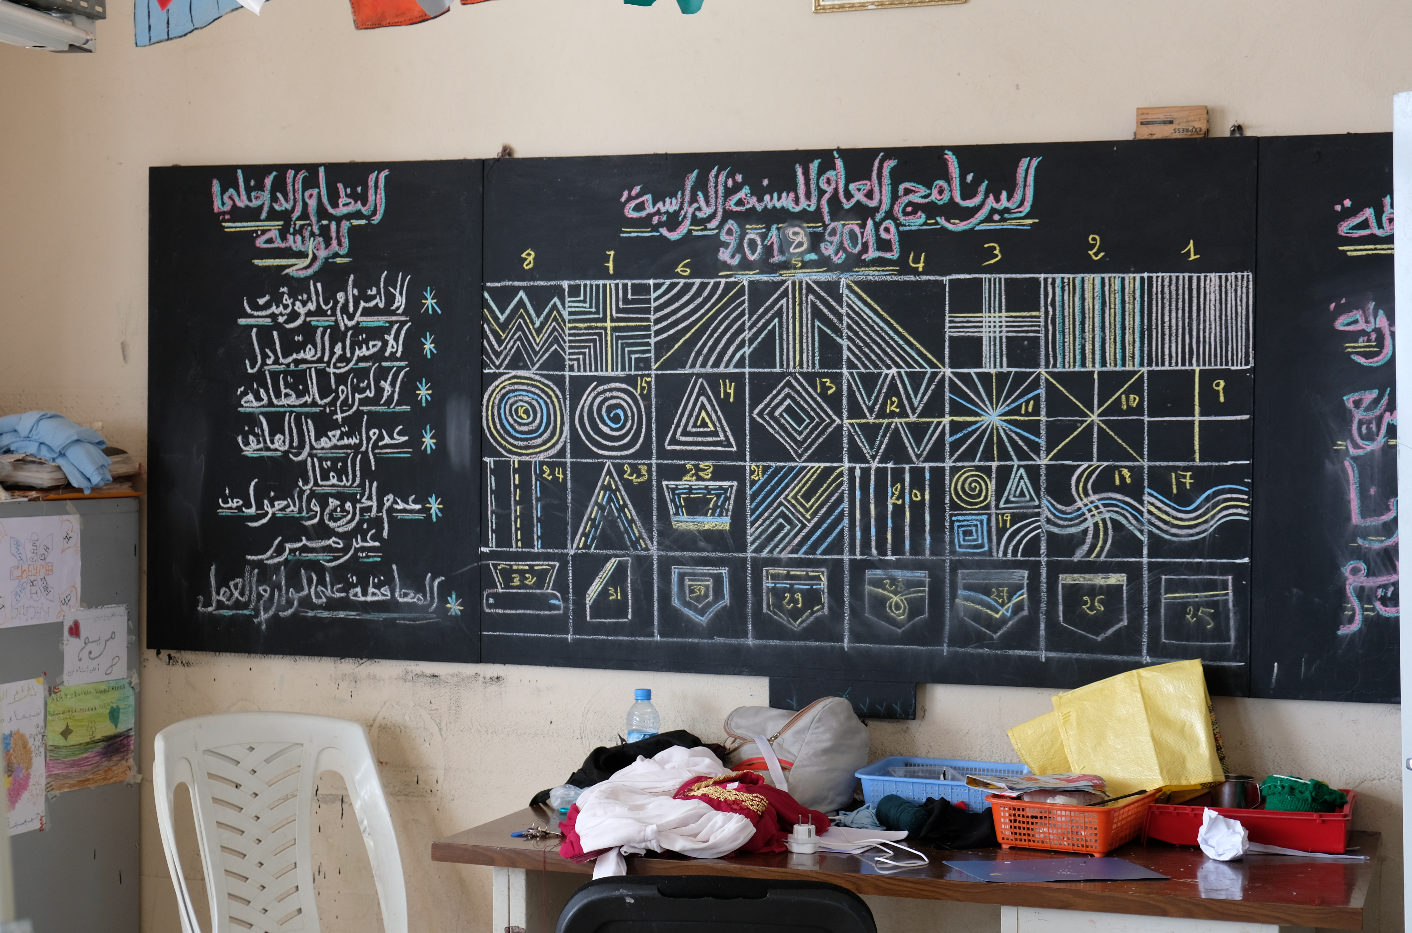 البرنامج العام للسنة الدراسية
2018 2019
1 2 3 4 5 6 7 8
9 10 11 12 13 14 15 16
17 18 19 20 21 22 23 24
25 26 27 28 29 30 31 32
النظام الداخلي
للورشة
الالتزام بالتوقيت
الاحترام المتبادل
الالتزام بالنظافة
عدم استعمال الهاتف
النقال
عدم الخروج والدخول من
غير مبرر
المحافظة على لوازم العمل
مريم
EXPRESS